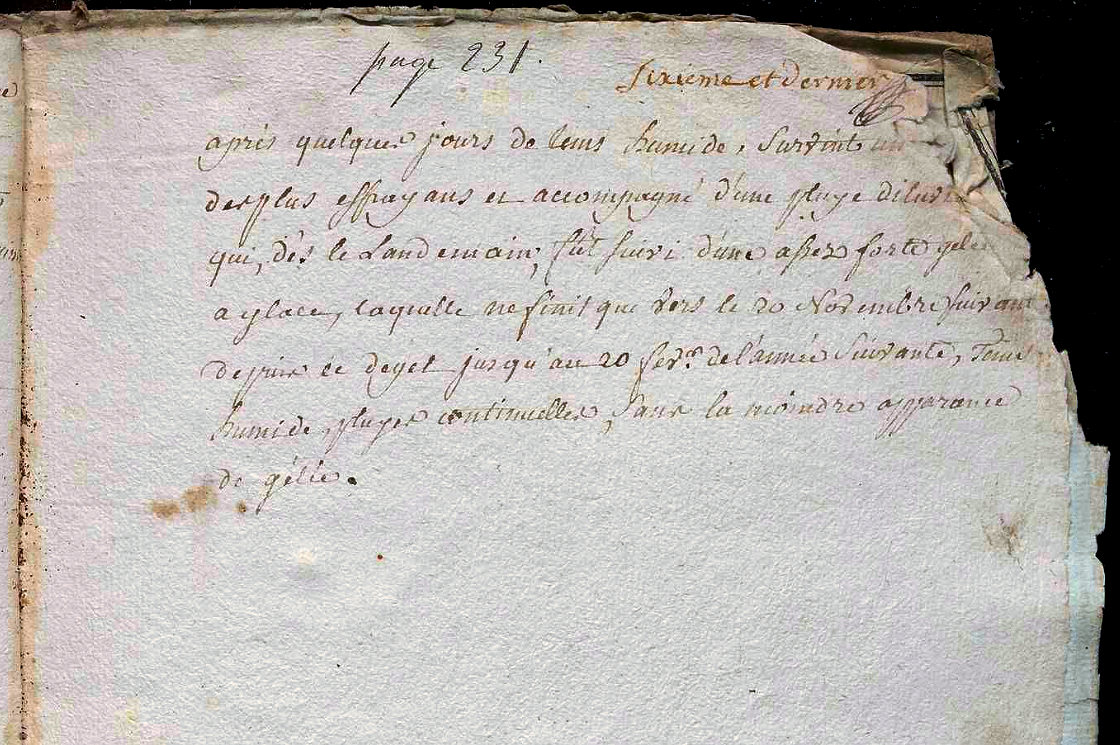 page 231.
Sixieme et dernier
après quelques jours de tems humide, Survint un
des plus effrayans et accompagné d'une pluye
qui, dès le Landemain, fût suivi d'une assez forte gelée
a glace, laquelle ne finit que vers le 20 Novembre suivant
depuis ce deget jusqu'au 20 fevr. de l'année Suivante, Tems
humide, pluyes continuelles, Sans la moindre apparance
de gélée.